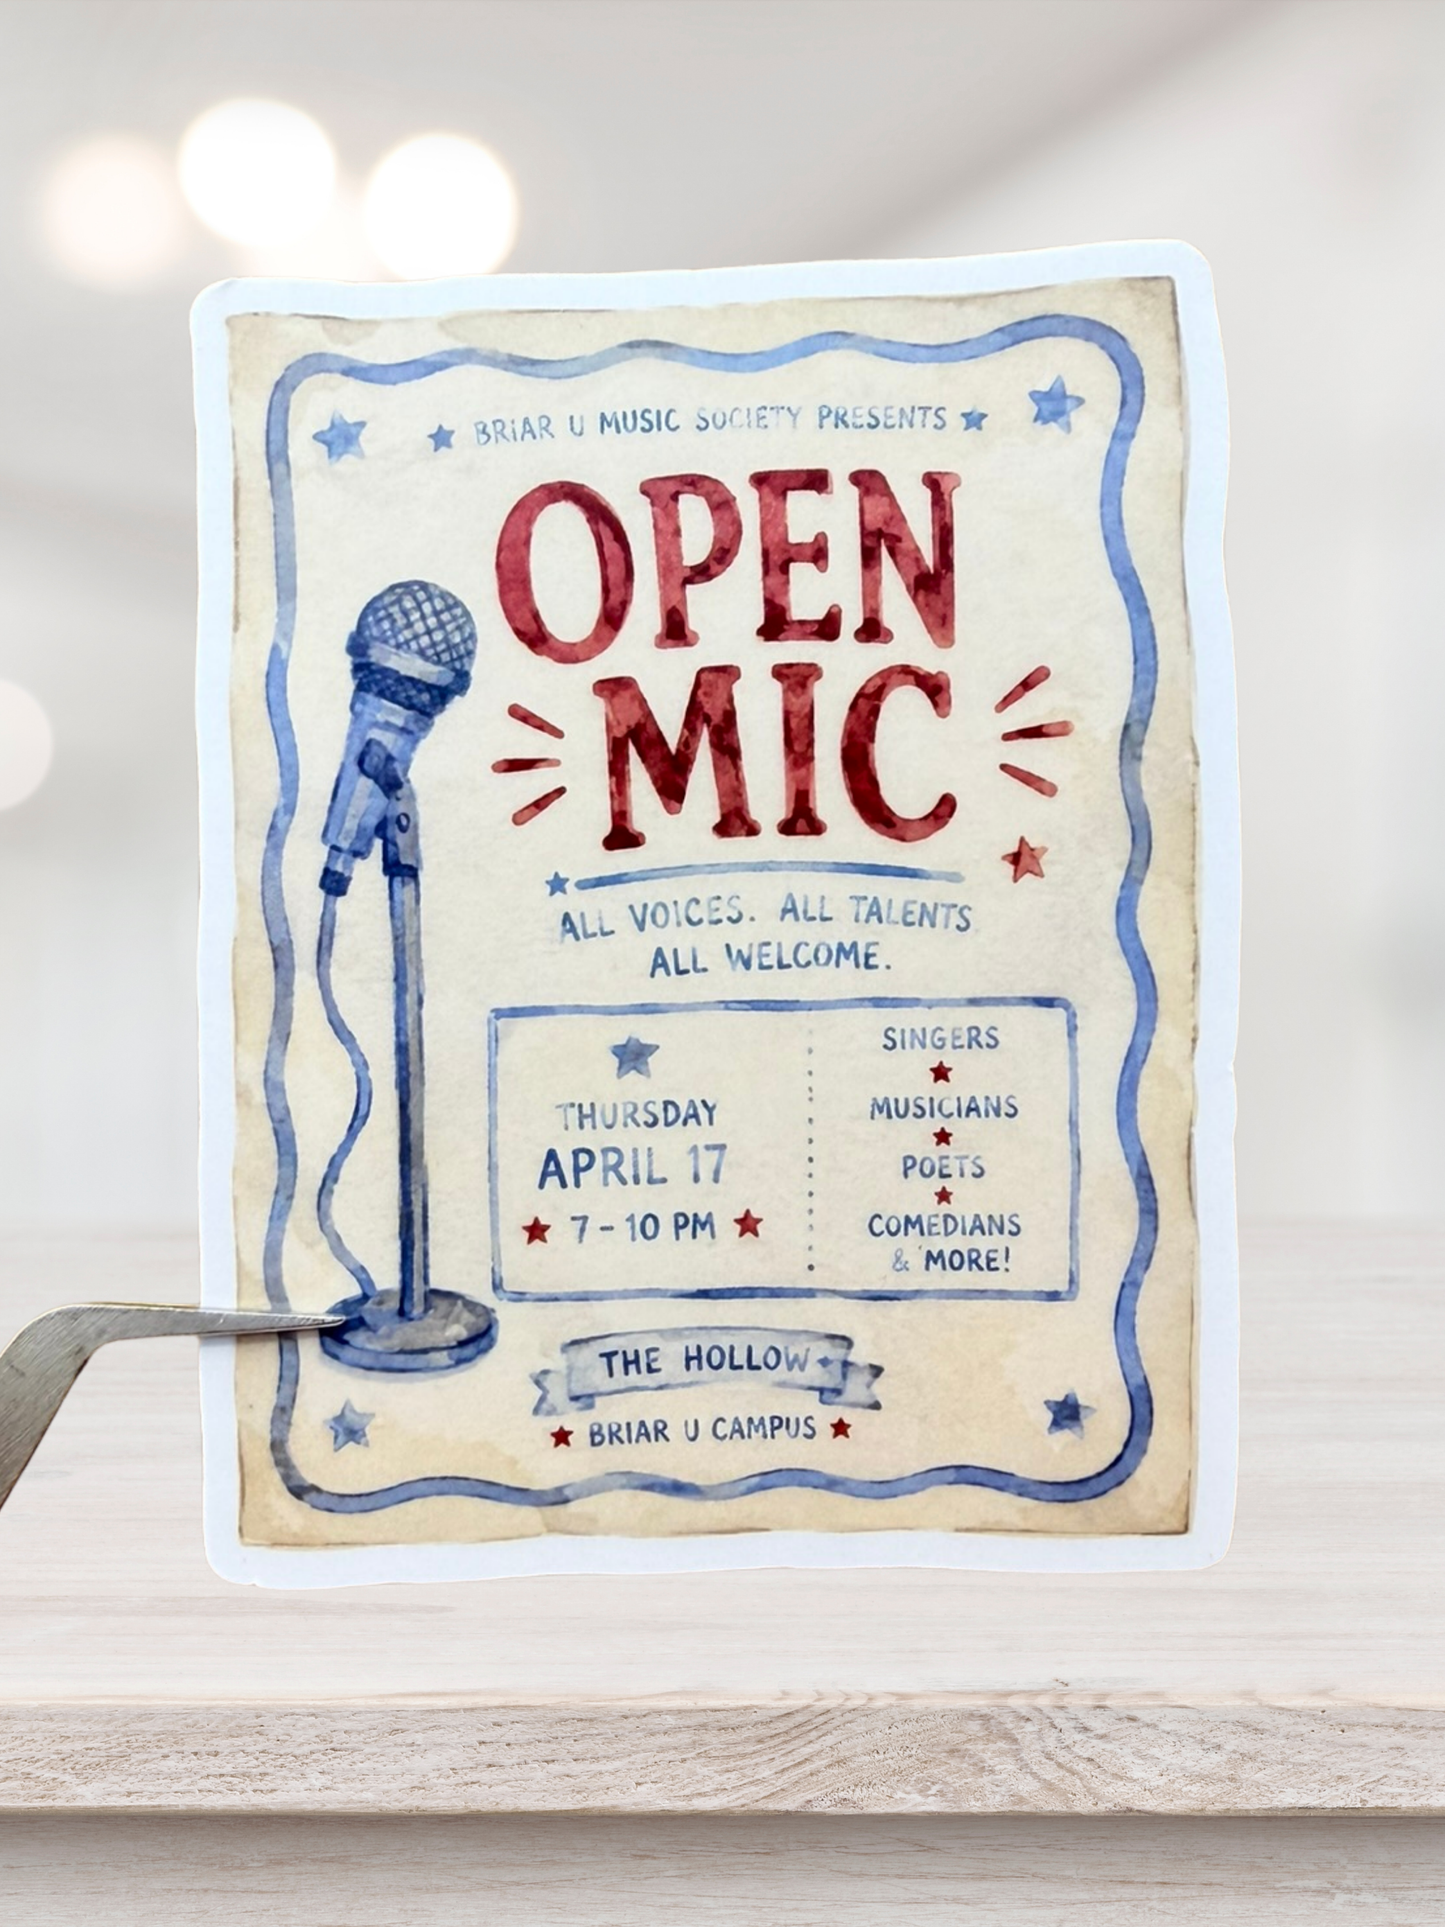 BRIAR U MUSIC SOCIETY PRESENTS
OPEN
MIC
ALL VOICES. ALL TALENTS
ALL WELCOME.
THURSDAY
APRIL 17
7 – 10 PM
SINGERS
MUSICIANS
POETS
COMEDIANS
& MORE!
THE HOLLOW
BRIAR U CAMPUS